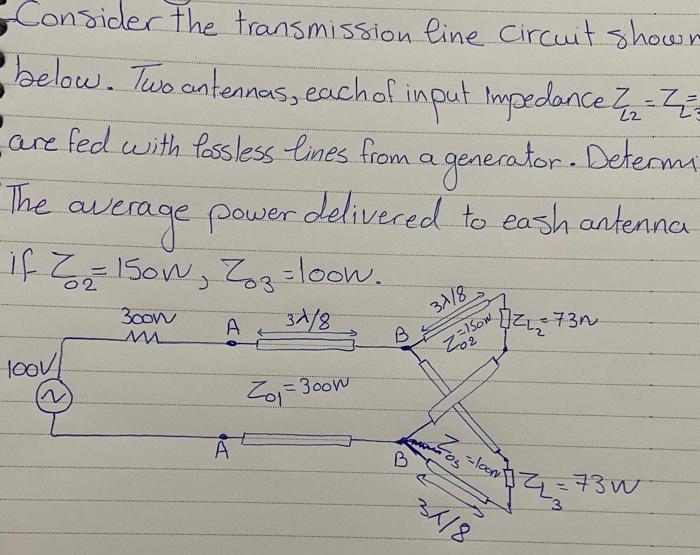 Consider the transmission line circuit shown
below. Two antennas, each of input Impedance Z_L2 = Z_L3 =
are fed with lossless lines from a generator. Determi
The average power delivered to eash antenna
if Z_02 = 150w, Z_03 = 100w.
300w
A
3λ/8
B
3λ/8
Z_02 = 150w
Z_L2 = 73n
100V
~
Z_01 = 300w
A
B
Z_03 = 100w
Z_L3 = 73w
3λ/8